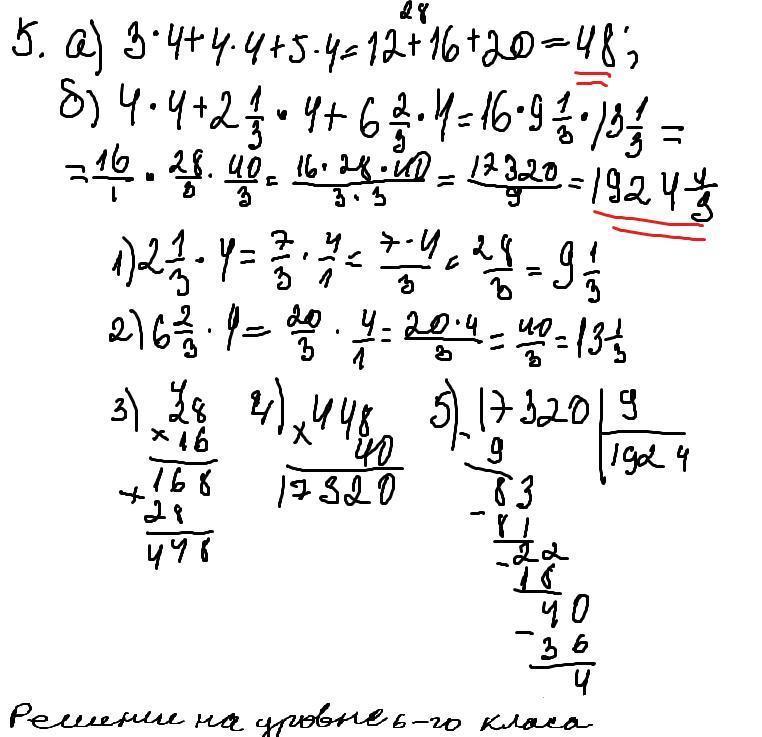 5. а) 3·4+4·4+5·4=12+16+20=48;
28
б) 4·4+2 1/3·4+6 2/3·4=16·9 1/3·13 1/3=
=16/1·28/3·40/3=16·28·40/3·3=17320/9=1924 4/9
1) 2 1/3·4=7/3·4/1=7·4/3=28/3=9 1/3
2) 6 2/3·4=20/3·4/1=20·4/3=40/3=13 1/3
3) 4
28
×16
168
+28
448
4) ×448
40
17320
5) 17320 | 9
1924
-9
83
-81
22
-18
40
-36
4
Решение на уровне 6-го класа